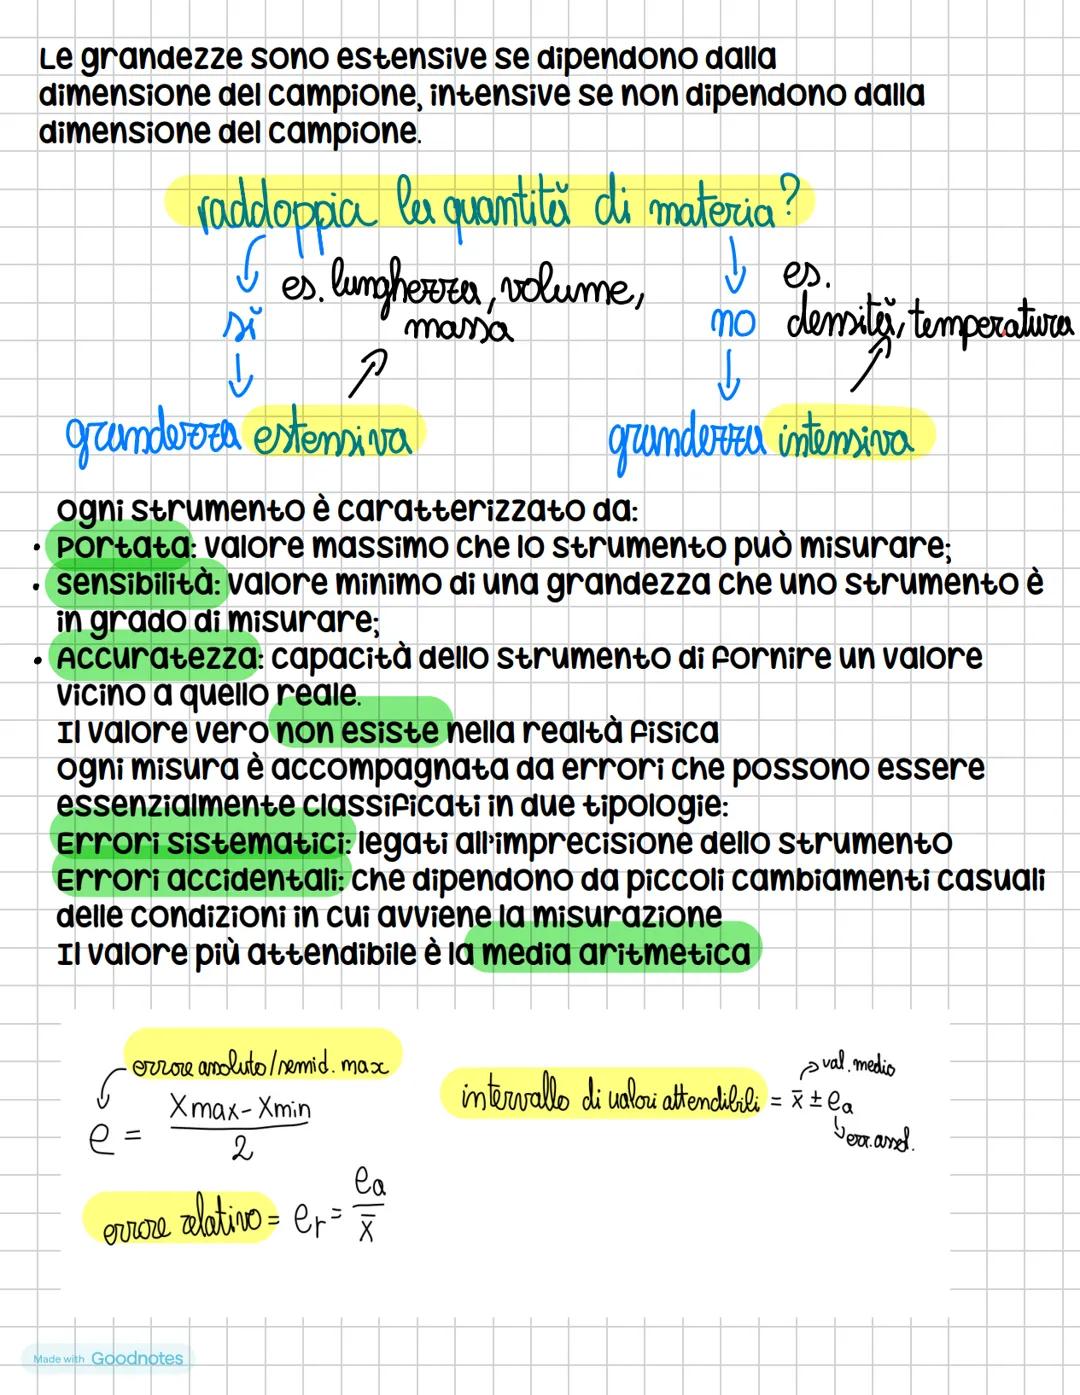 Le grandezze sono estensive se dipendono dalla
dimensione del campione, intensive se non dipendono dalla
dimensione del campione.
raddoppia la quantità di materia?
es. lunghezza, volume,
massa
es.
densità, temperatura
sì
no
grandezza estensiva
grandezza intensiva
Ogni strumento è caratterizzato da:
• Portata: valore massimo che lo strumento può misurare;
• Sensibilità: valore minimo di una grandezza che uno strumento è
in grado di misurare;
• Accuratezza: capacità dello strumento di fornire un valore
vicino a quello reale.
Il valore vero non esiste nella realtà fisica
Ogni misura è accompagnata da errori che possono essere
essenzialmente classificati in due tipologie:
Errori sistematici: legati all'imprecisione dello strumento
Errori accidentali: che dipendono da piccoli cambiamenti casuali
delle condizioni in cui avviene la misurazione
Il valore più attendibile è la media aritmetica
errore assoluto/semid. max
e = (Xmax-Xmin)/2
val. medio
intervallo di valori attendibili = x̄ ± ea
err. assol.
errore relativo = er = ea/x̄
Made with Goodnotes